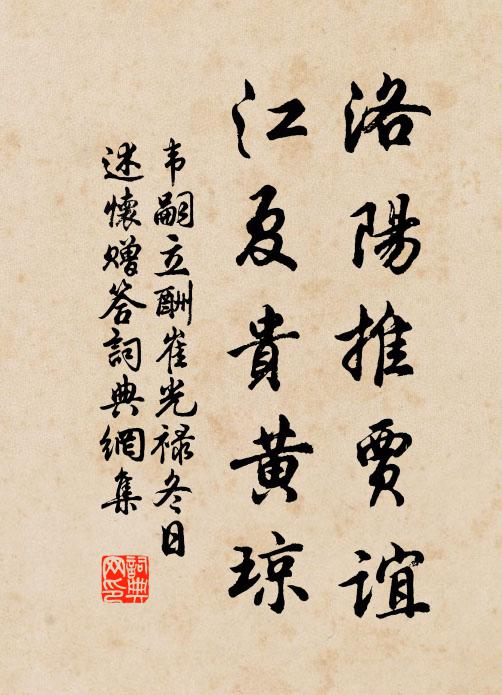 洛陽推賈誼
江夏貴黃琼
韦嗣立酬崔光祿冬日
述懷赠答詞典網集
詞典网印